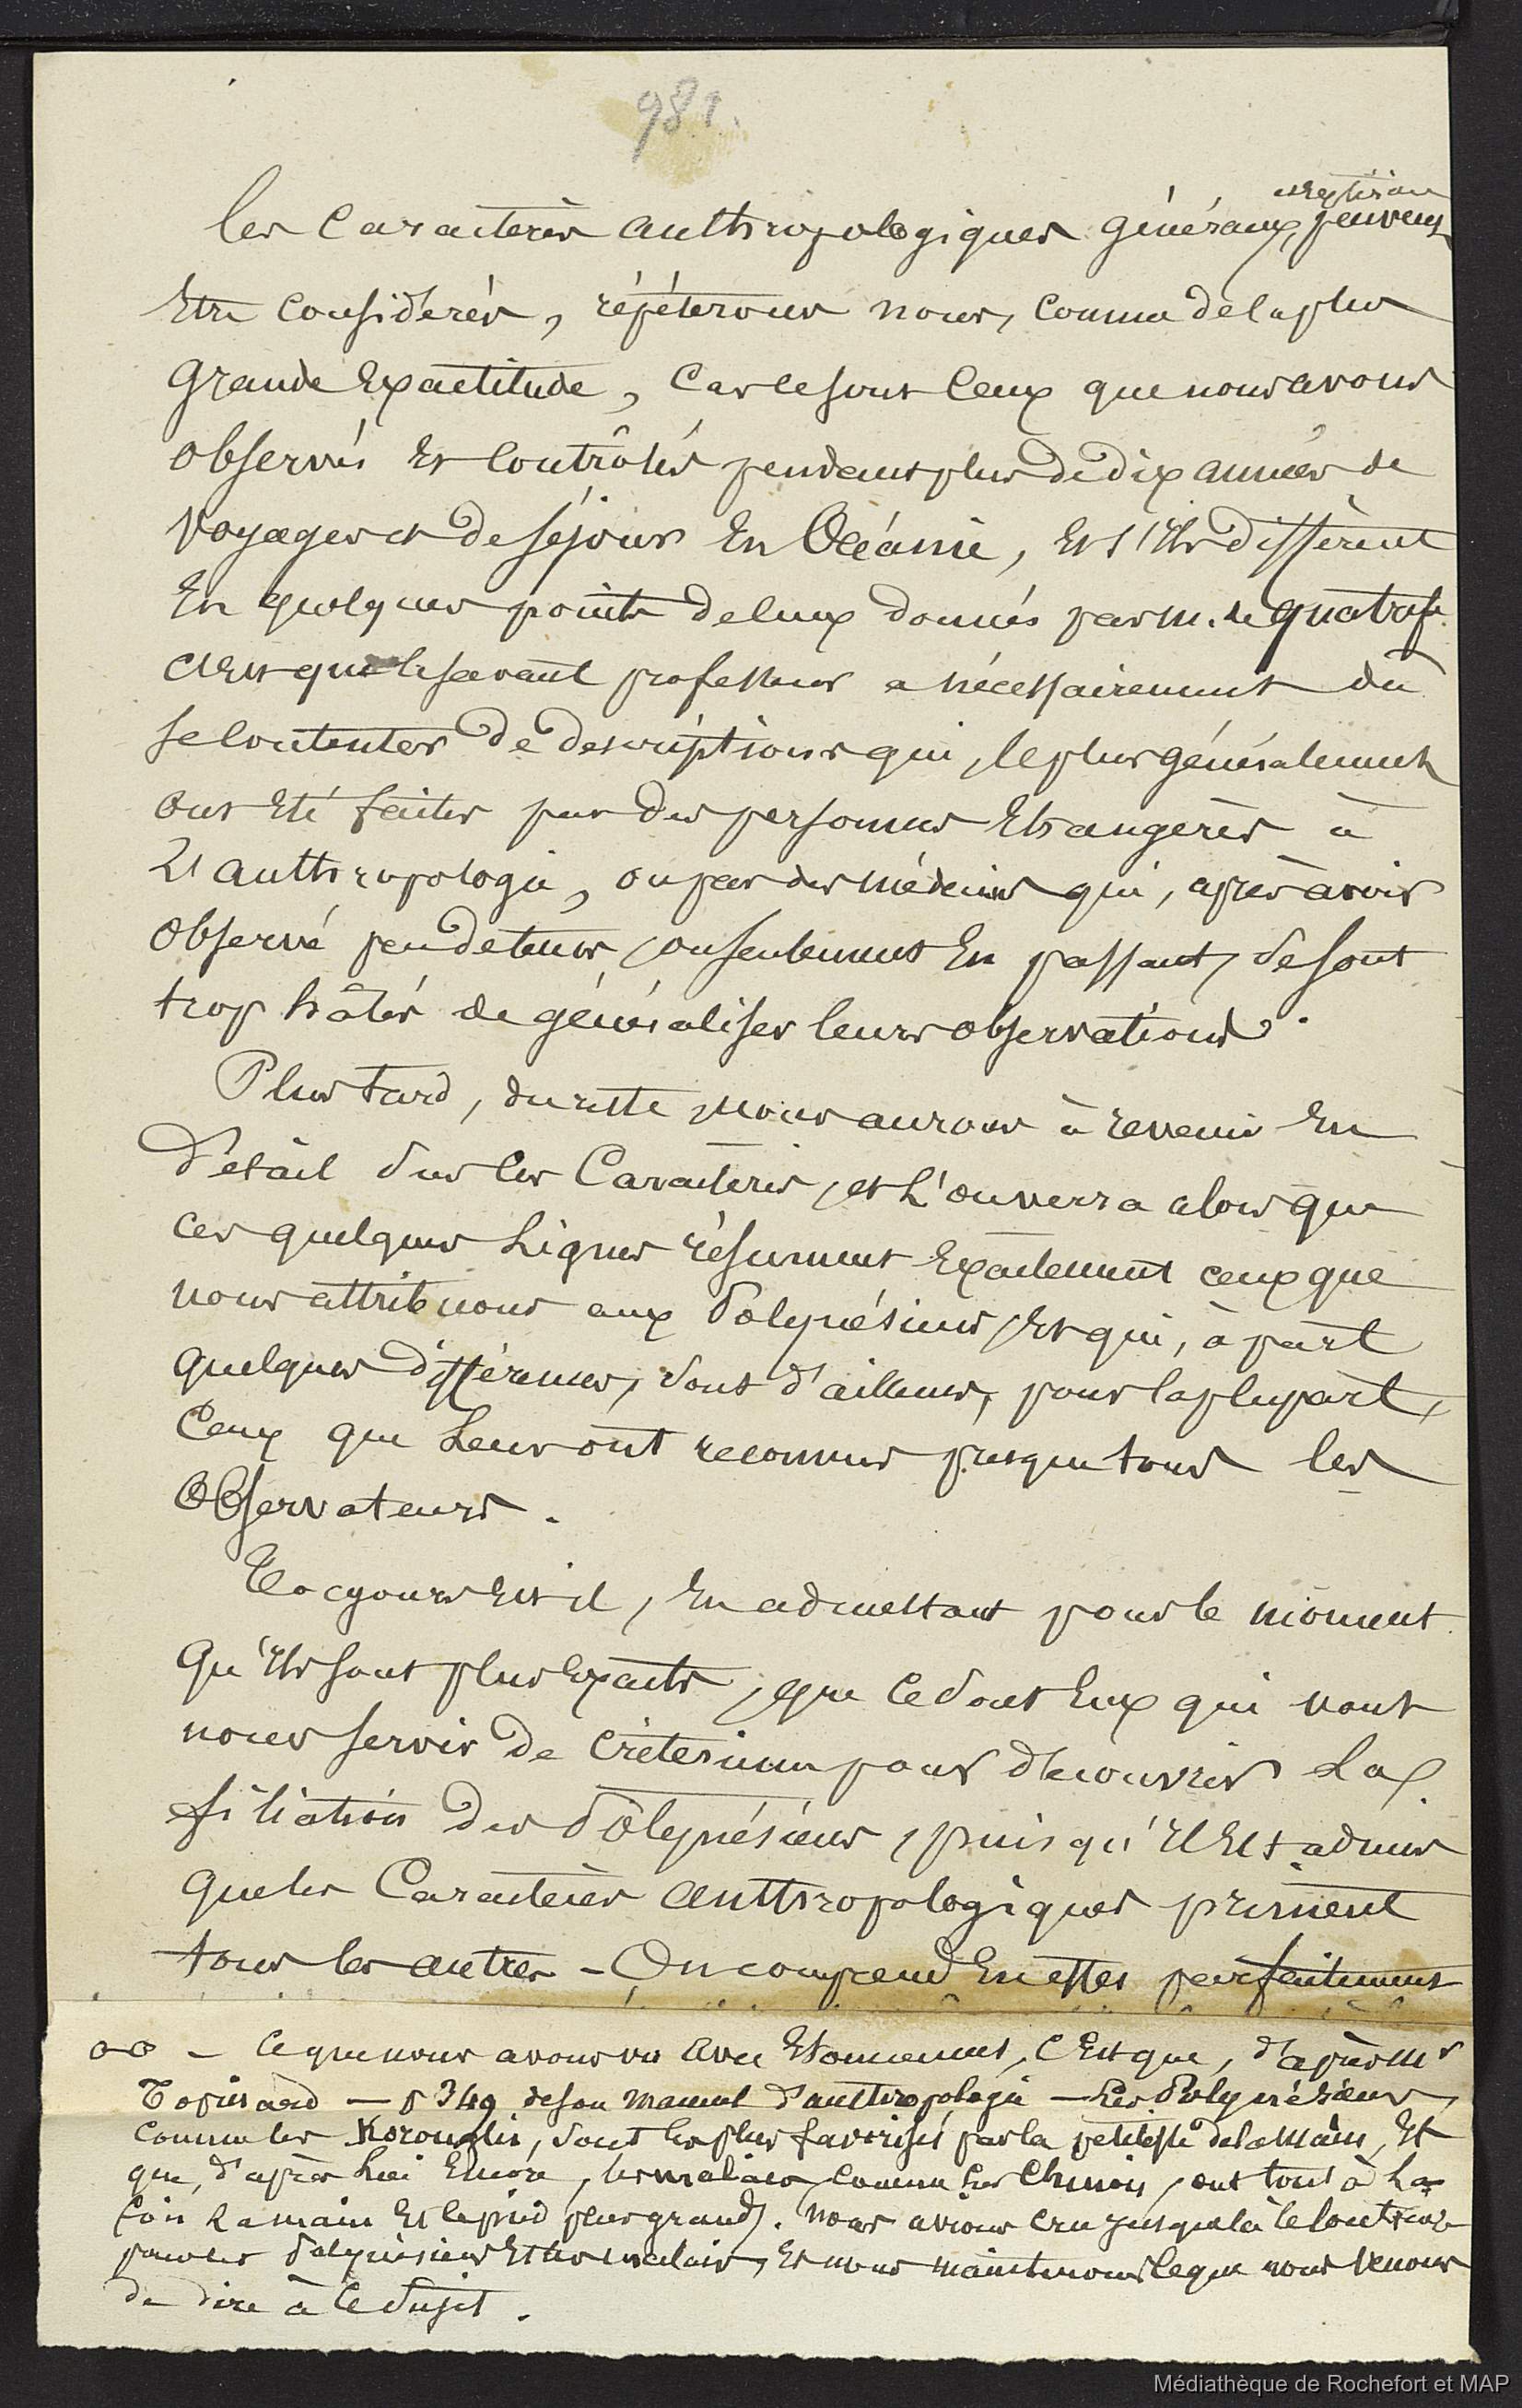 981.
Les caractères anthropologiques généraux, peuvent
être considérés, répéterons nous, comme de la plus
grande exactitude, car ce sont ceux que nous avons
observés et contrôlés pendant plus de dix années de
voyages et de séjour en Océanie, et s'ils diffèrent
en quelques points de ceux donnés par M. de Quatref.
c'est que le savant professeur a nécessairement dû
se contenter de descriptions qui, le plus généralement
ont été faites par des personnes étrangères à
l'anthropologie, ou par des médecins qui, après avoir
observé peu de temps, ou seulement en passant, se sont
trop hâtés de généraliser leurs observations.
Plus tard, du reste, nous aurons à revenir en
détail sur les caractères, et l'on verra alors que
ces quelques lignes résument exactement ceux que
nous attribuons aux Polynésiens, et qui, à part
quelques différences, sont d'ailleurs, pour la plupart,
ceux que leur ont reconnus presque tous les
observateurs.
Toujours est-il, en admettant pour le moment
qu'ils sont plus exacts, que ce sont eux qui vont
nous servir de critérium pour découvrir la
filiation des Polynésiens, puisqu'il est admis
que les caractères anthropologiques priment
tous les autres - On comprend en effet parfaitement
- Ce que nous avons vu avec étonnement, c'est que, d'après Mr
Topinard — p 349 de son manuel d'anthropologie — les Polynésiens,
comme les, sont les plus favorisés par la petitesse de la main, et
que, d'après lui encore, les malais, comme les Chinois, ont tout à la
fois la main et le pied plus grands. Nous avions cru jusque là le contraire
pour les Polynésiens et les malais, et nous maintenons ce que nous venons
de dire à ce sujet.
Médiathèque de Rochefort et MAP